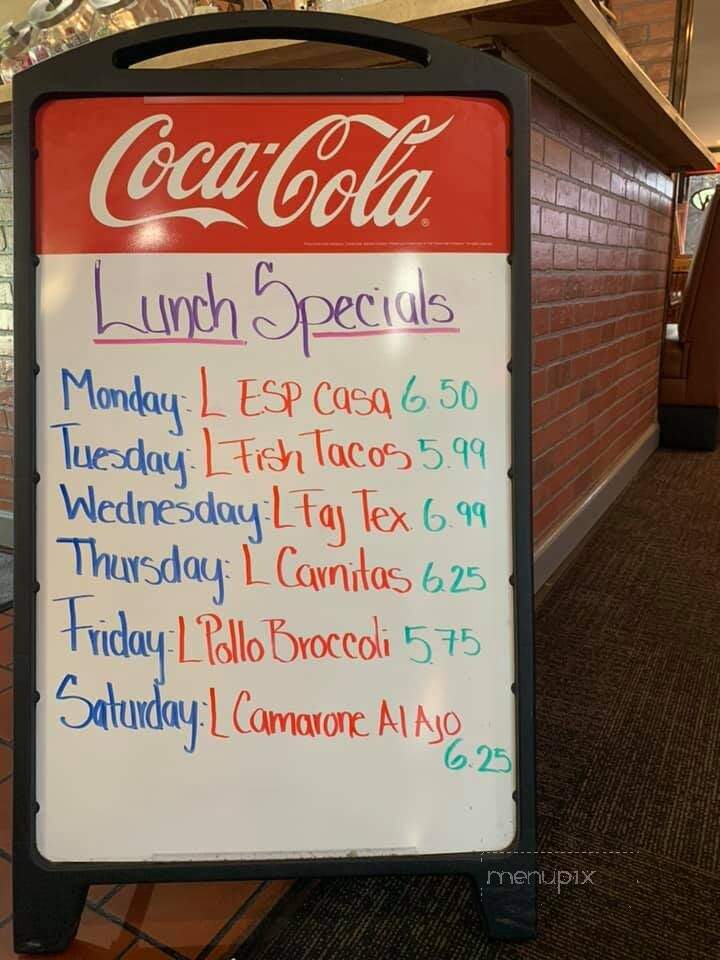 Coca-Cola
Lunch Specials
Monday: L ESP Casa 6.50
Tuesday: L Fish Tacos 5.99
Wednesday: L Faj Tex 6.99
Thursday: L Carnitas 6.25
Friday: L Pollo Broccoli 5.75
Saturday: L Camarone Al Ajo
6.25
menupix